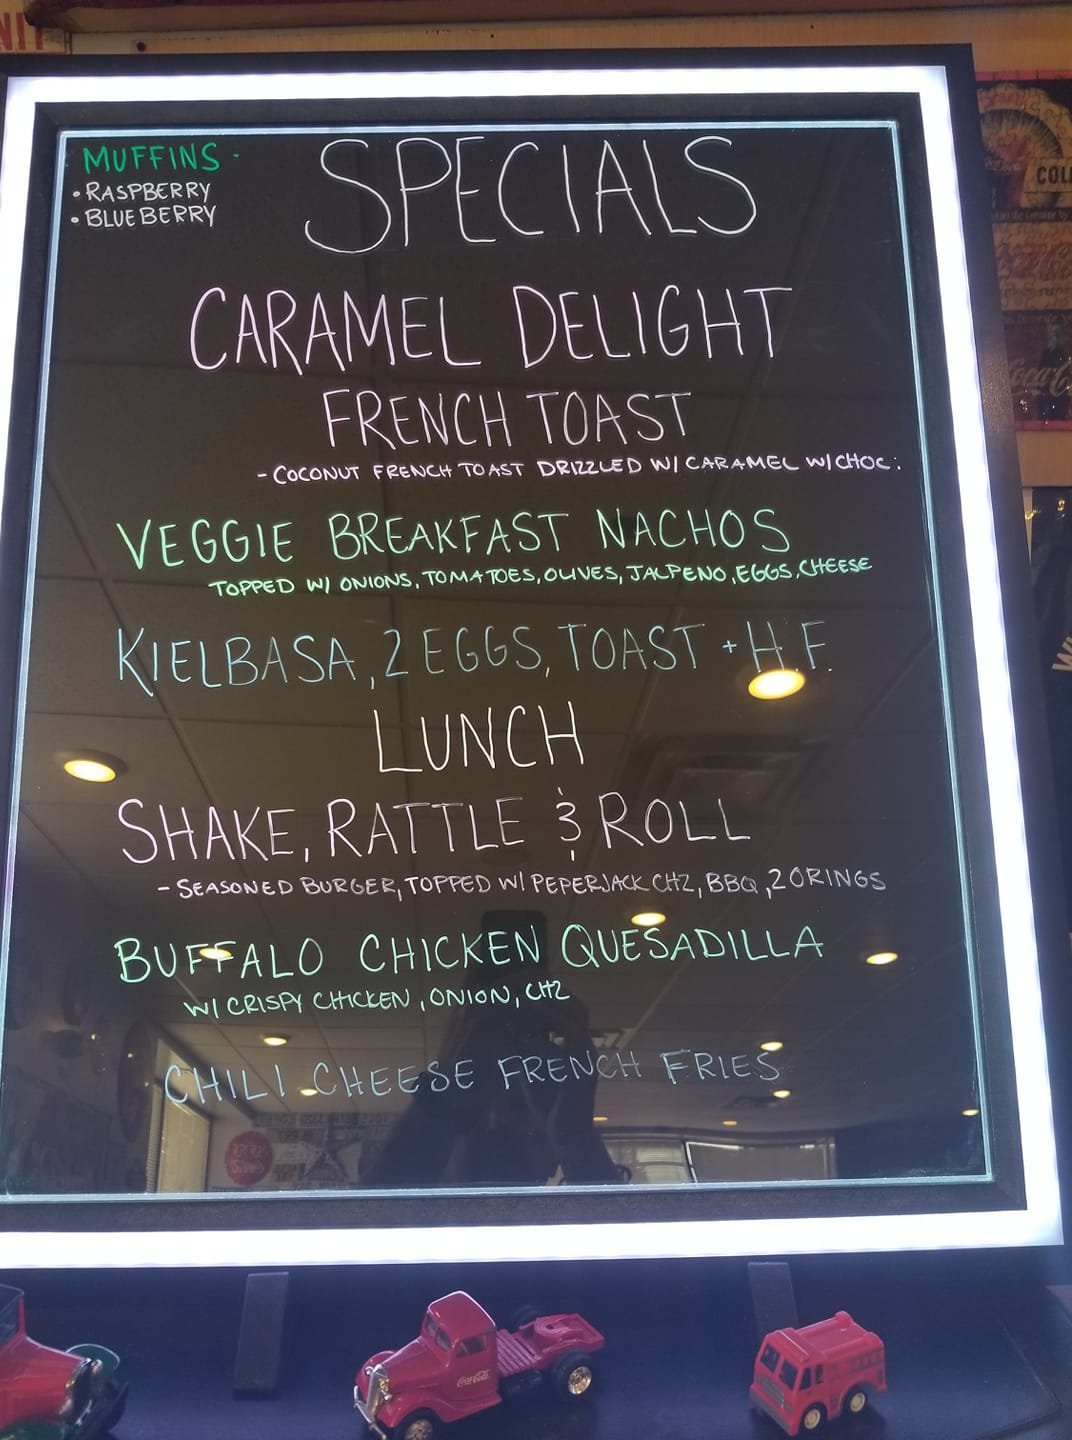 MUFFINS
• RASPBERRY
• BLUEBERRY
SPECIALS
CARAMEL DELIGHT
FRENCH TOAST
- COCONUT FRENCH TOAST DRIZZLED W/ CARAMEL W/ CHOC.
VEGGIE BREAKFAST NACHOS
TOPPED W/ ONIONS, TOMATOES, OLIVES, JALPENO, EGGS, CHEESE
KIELBASA, 2 EGGS, TOAST + H.F.
LUNCH
SHAKE, RATTLE & ROLL
- SEASONED BURGER, TOPPED W/ PEPERJACK CHZ, BBQ, 2 ORINGS
BUFFALO CHICKEN QUESADILLA
W/ CRISPY CHICKEN, ONION, CHZ
CHILI CHEESE FRENCH FRIES
Coca-Cola